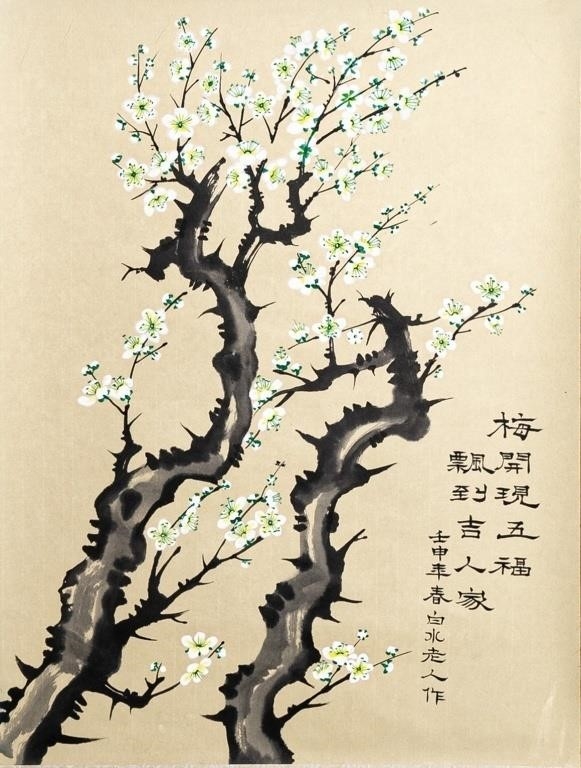 梅開現五福
飄到吉人家
壬申年春白水老人作